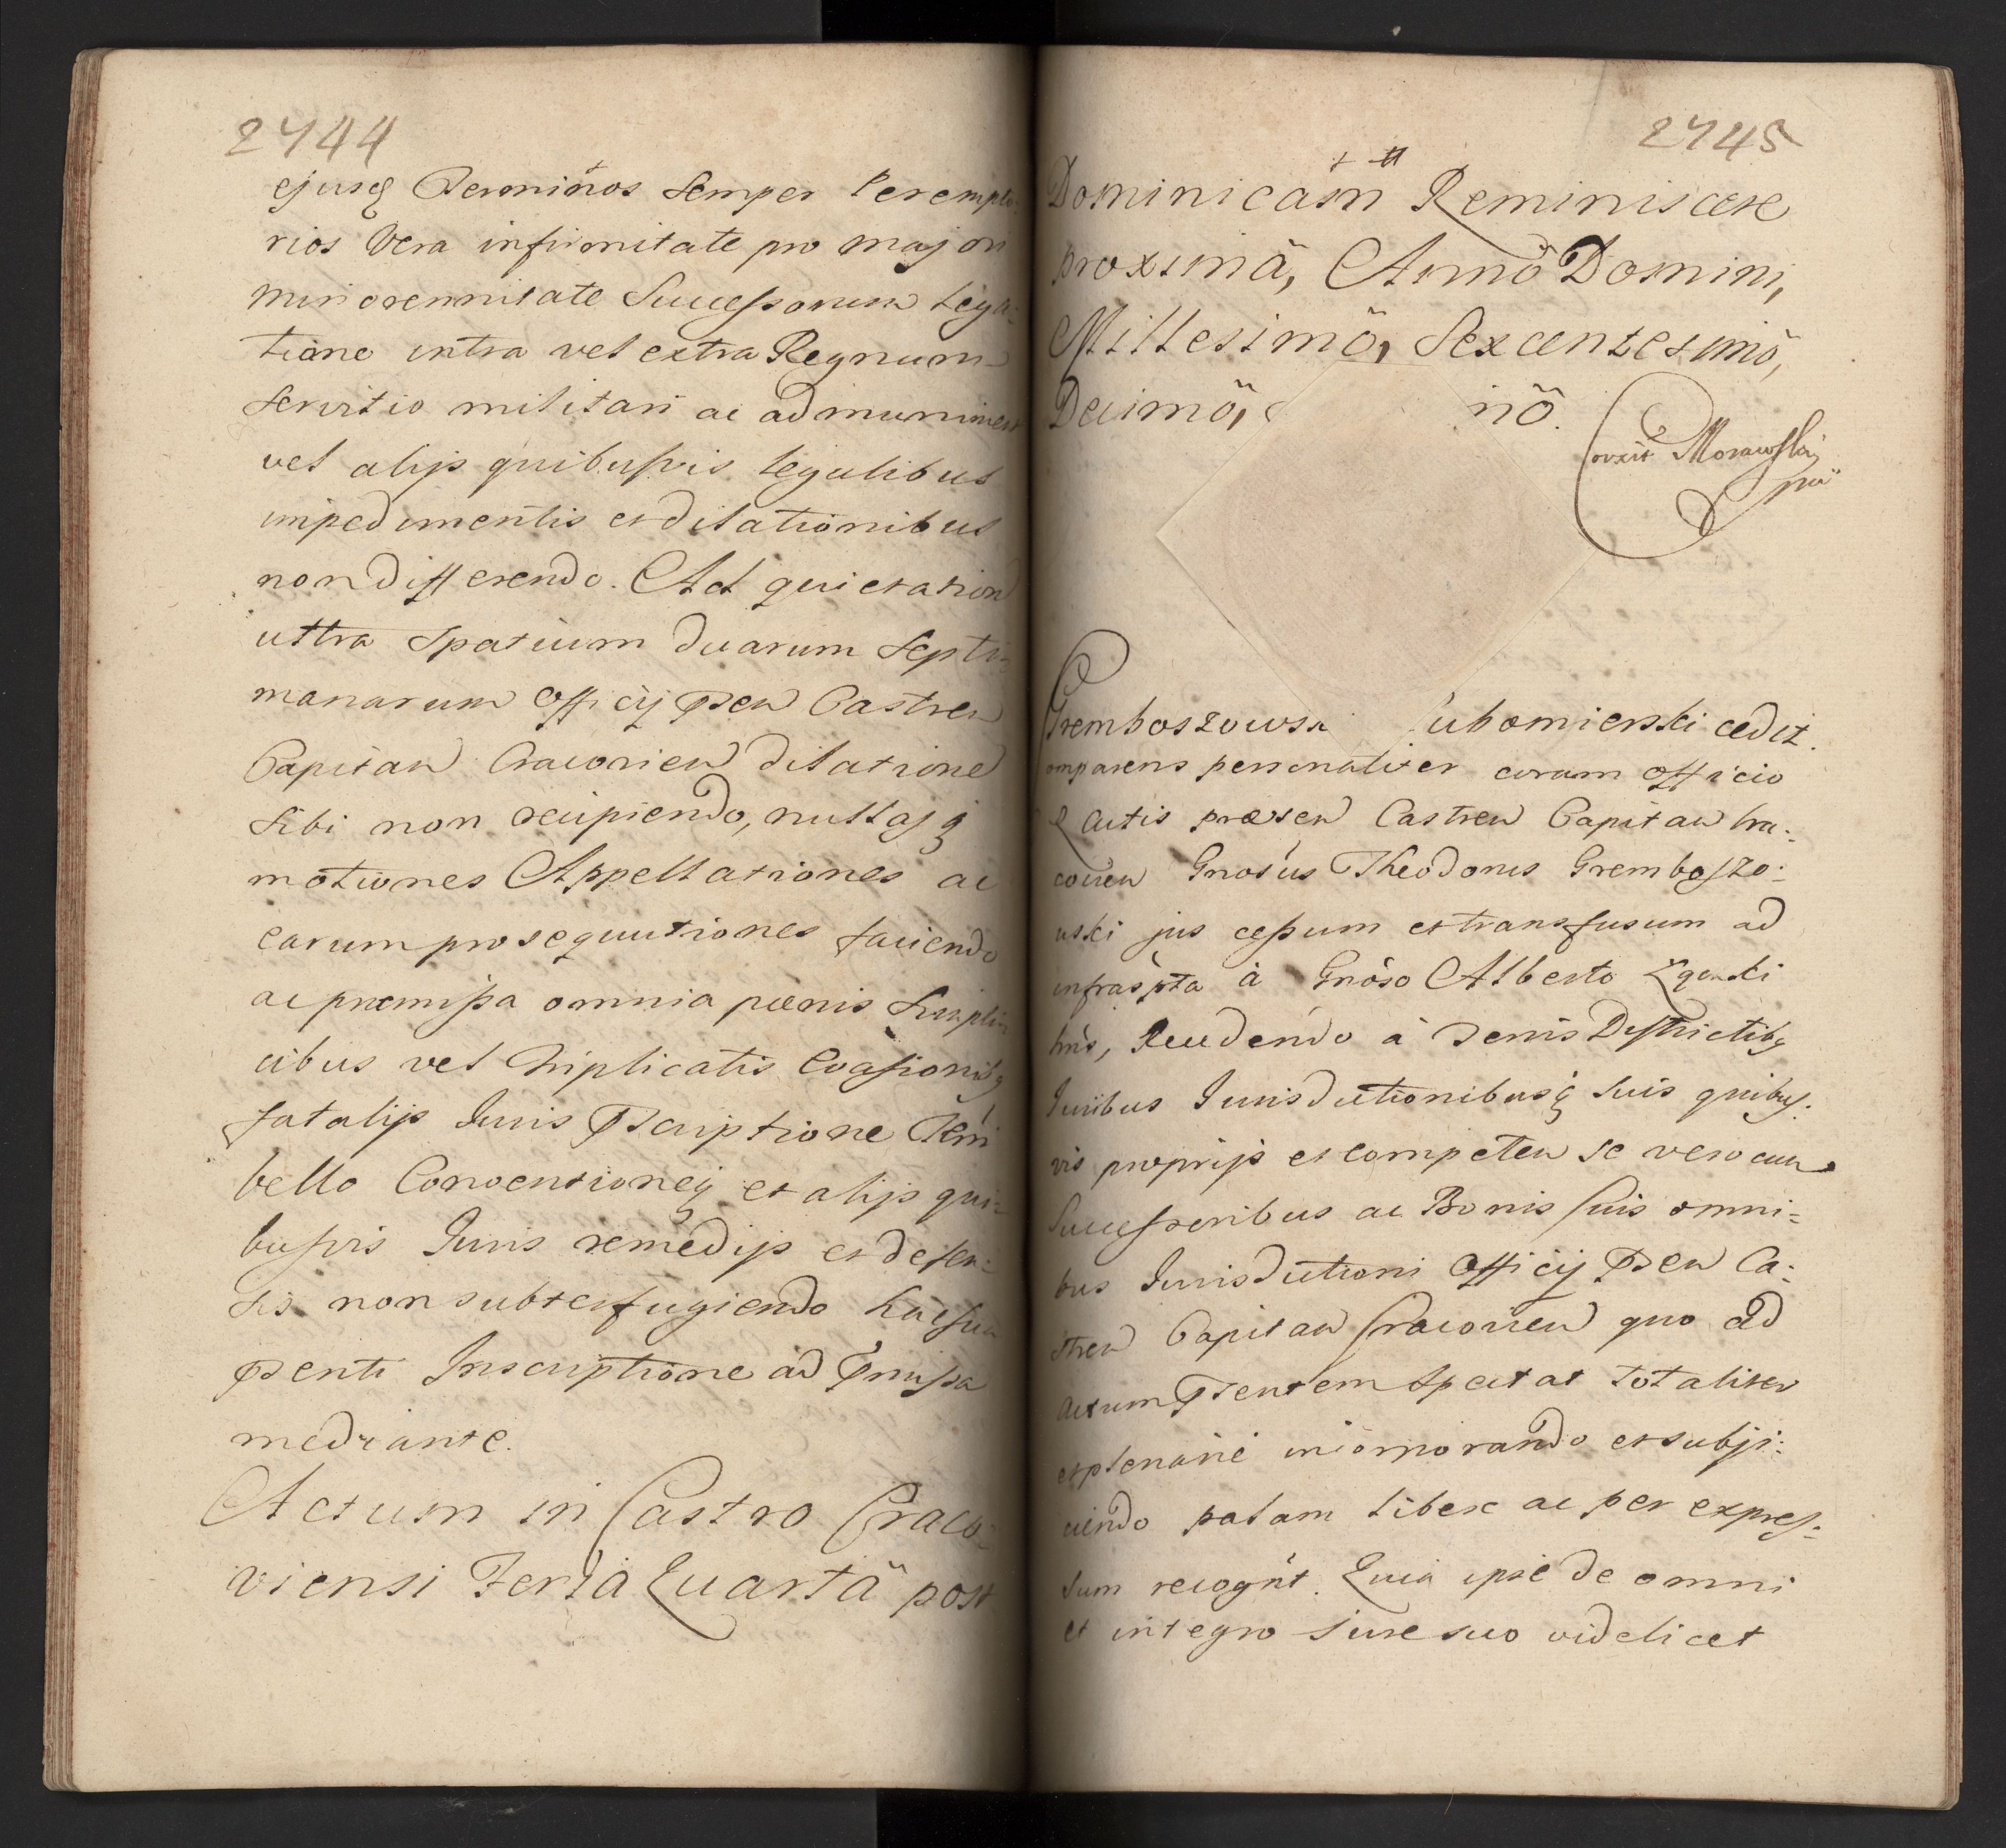 2744
ejusq Terminos semper Perempto-
rios Vera infirmitate pro majori
minorennitate Successorum lega-
tione intra vel extra Regnum
servitio militari ac ad muniment
vel alijs quibusvis legalibus
impedimentis et dilationibus
non differendo. Ad quietation
ultra spatium duarum septi-
manarum Officij Psen Castren
Capitan Cracovien dilatione
sibi non recipiendo, nullasq
motiones Appellationes ac
earum prosequutiones faciendo
ac præmissa omnia pænis simpli-
cibus vel triplicatis Evasionibq
fatalijs Juris Pscriptione
bello Conventioneq et alijs qui-
busvis Juris remedijs et defen-
sis non subterfugiendo hac sua
Psenti Inscriptione ad Pmissa
mediante.
Actum in Castro Craco-
viensi Feria Quarta post
2745
Dominicam Reminiscere
proxima, Anno Domini,
Millesimo, Sexcentesimo,
Decimo, no.
Corxit Morawski
mp
Gremboszowski Lubomierski cedit.
Comparens personaliter coram Officio
& Actis præsen Castren Capitan Cra-
covien Gnosus Theodorus Gremboszo-
wski jus cessum et transfusum ad
infrascpta à Gnoso Alberto
hns, Recedendo à Terris Districtibq
Juribus Jurisdictionibusq suis quibus-
vis proprijs et competen se vero cum
Successoribus ac Bonis suis omni-
bus Jurisdictioni Officij Psen Ca-
stren Capitan Cracovien quo ad
actum Psentem spectat totaliter
et plenarie incorporando et subji-
ciendo palam libere ac per expres-
sum recognt. Quia ipse de omni
et integro jure suo videlicet